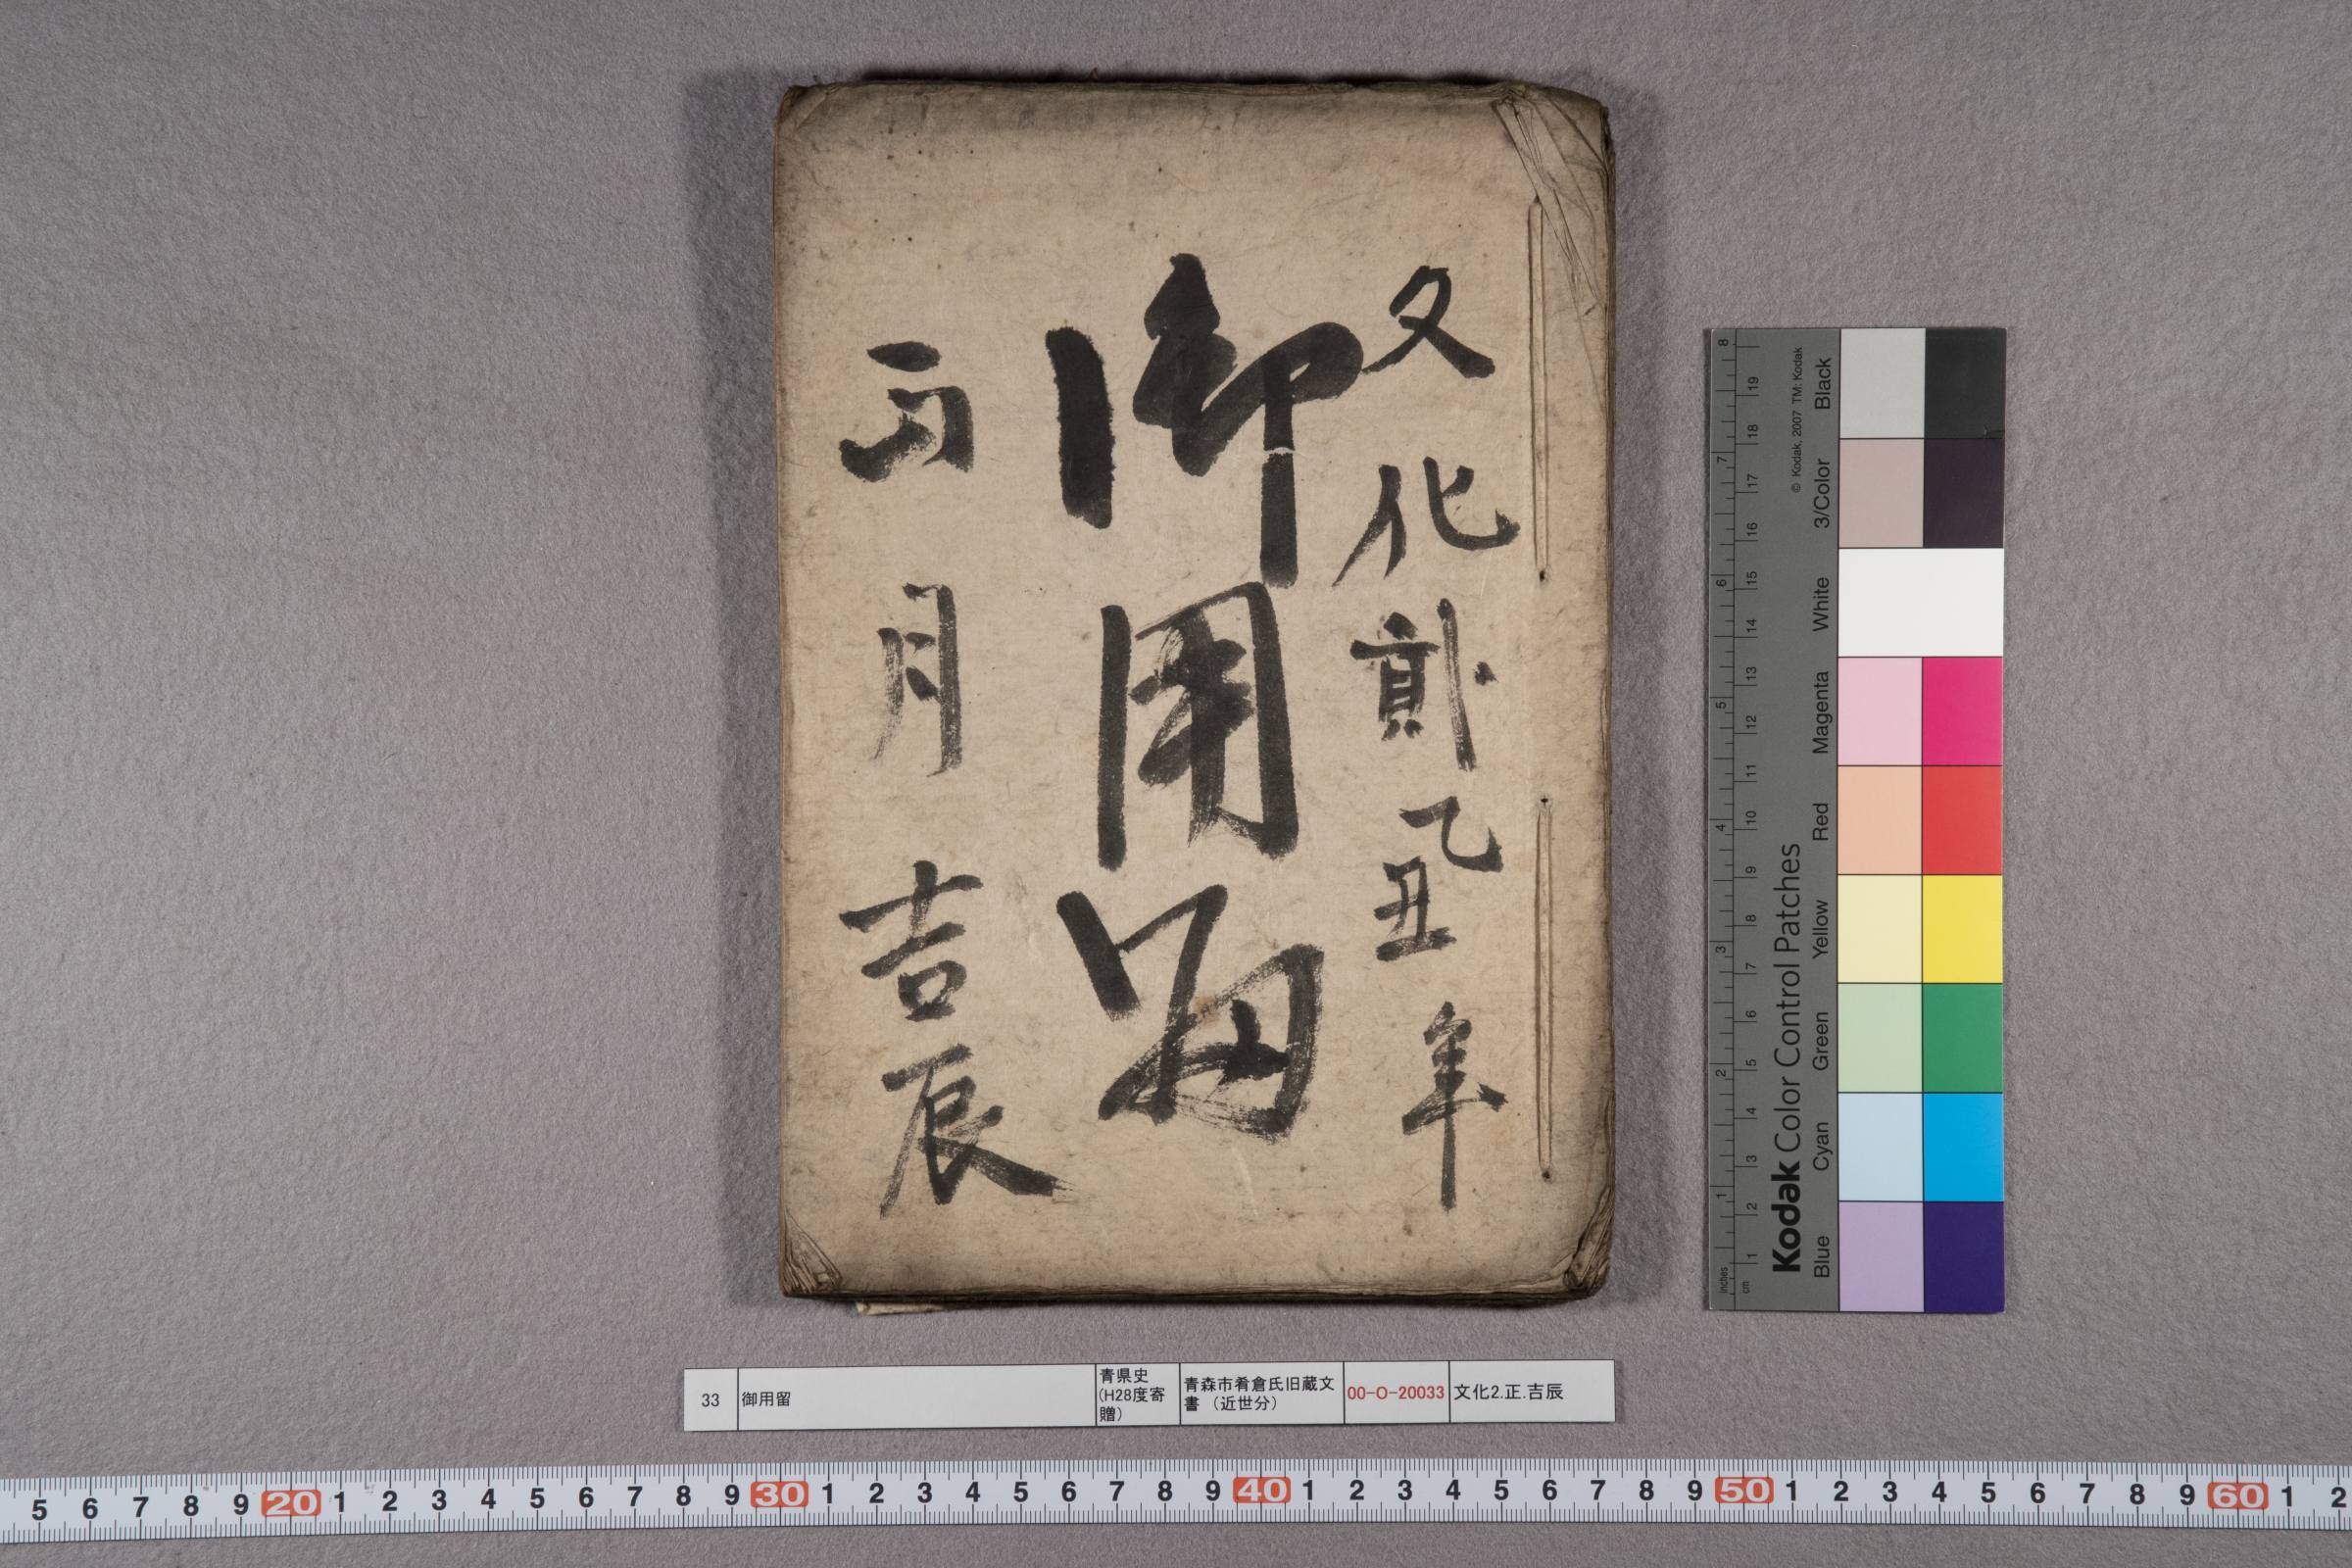 文化貳乙丑年
御用留
正月吉辰
33
御用留
青県史
(H28度寄
贈)
青森市肴倉氏旧蔵文
書（近世分）
00-O-20033
文化2.正.吉辰
Kodak Color Control Patches
© Kodak, 2007 TM: Kodak
Black
3/Color
White
Magenta
Red
Yellow
Green
Cyan
Blue
inches 1 2 3 4 5 6 7 8
cm 1 2 3 4 5 6 7 8 9 10 11 12 13 14 15 16 17 18 19
5 6 7 8 9 20 1 2 3 4 5 6 7 8 9 30 1 2 3 4 5 6 7 8 9 40 1 2 3 4 5 6 7 8 9 50 1 2 3 4 5 6 7 8 9 60 1 2